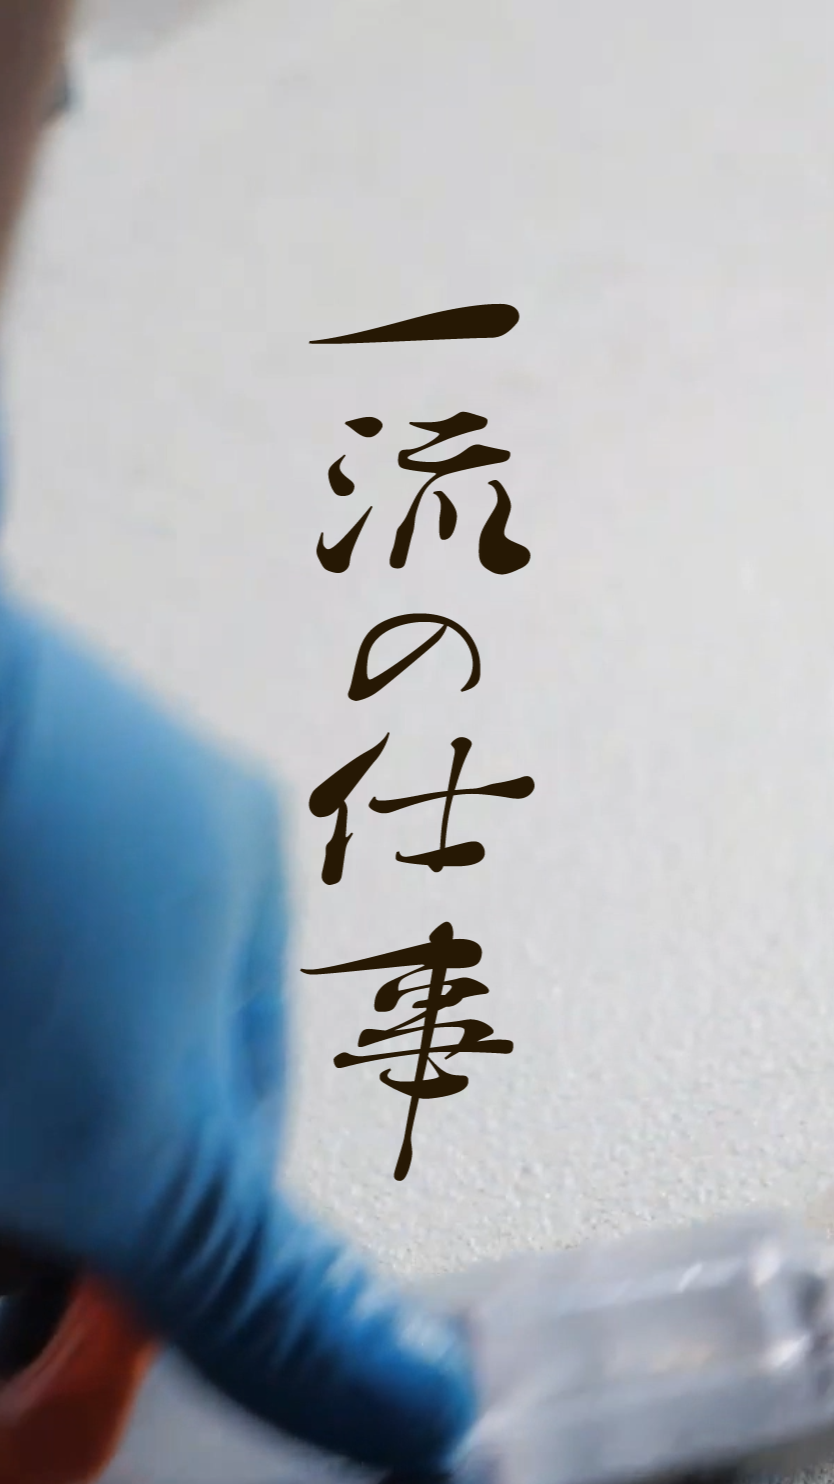 一流の仕事